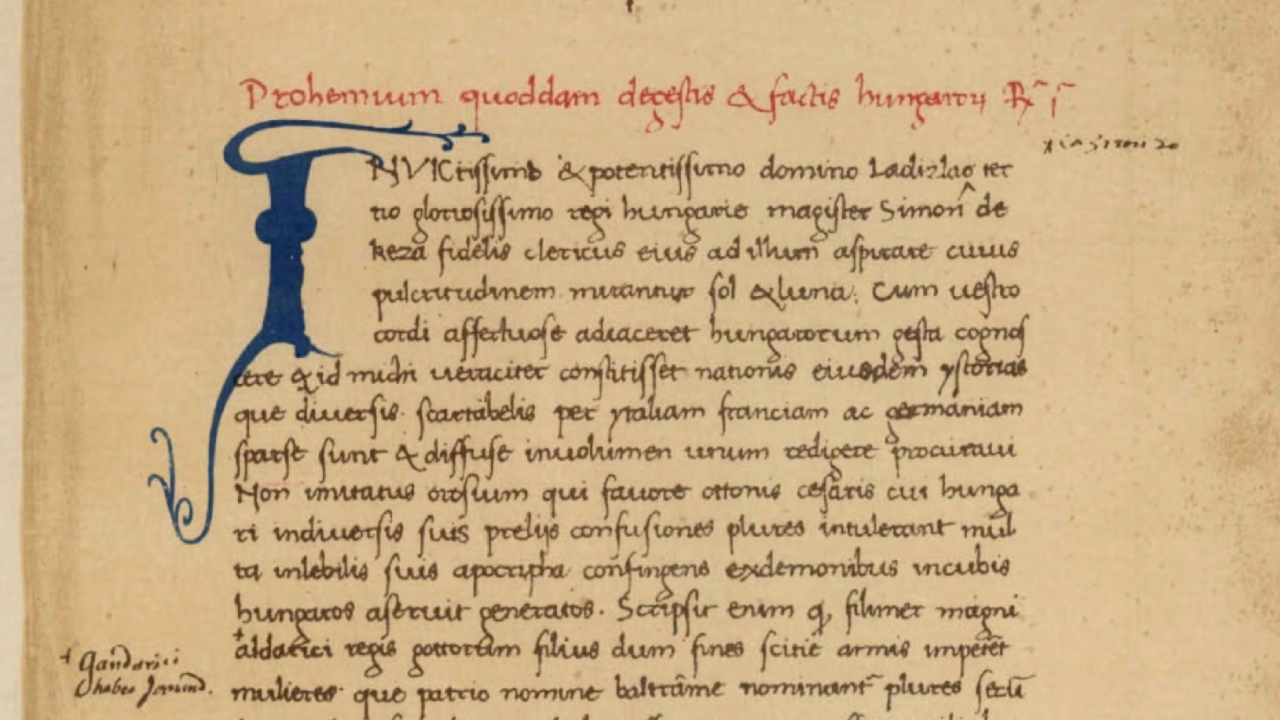 Prohemium quoddam degestis & factis hungarorꝝ Rx̃ ĩ
INVICtissimo & potentissimo domino Ladizlao ter
tio gloriosissimo regi hungarie magister Simon̄ de
keza fidelis clericus eius ad illum aspirare cuius
pulcritudinem mirantur sol & luna. Cum uestro
cordi affectuose adiaceret hungarorum gesta cognos
cere & id michi ueraciter constitisset nationis eiusdem ystorias
que diuersis scartabelis per ytaliam franciam ac germaniam
sparse sunt & diffuse inuolumen unum redigere procuraui
Non imitatus orosium qui fauore ottonis cesaris cui hunga
ri indiuersis suis prelijs confusiones plures intulerant mul
ta inlebilis suis apocripha confingens exdemonibus incubis
hungaros aseruit generatos. Scripsit enim q, filimer magni
aldarici regis gottorum filius dum fines scitie armis impeteret
+ Gandarici
habes Jornand.
mulieres que patrio nomine baltrame nominant̃ plures secū